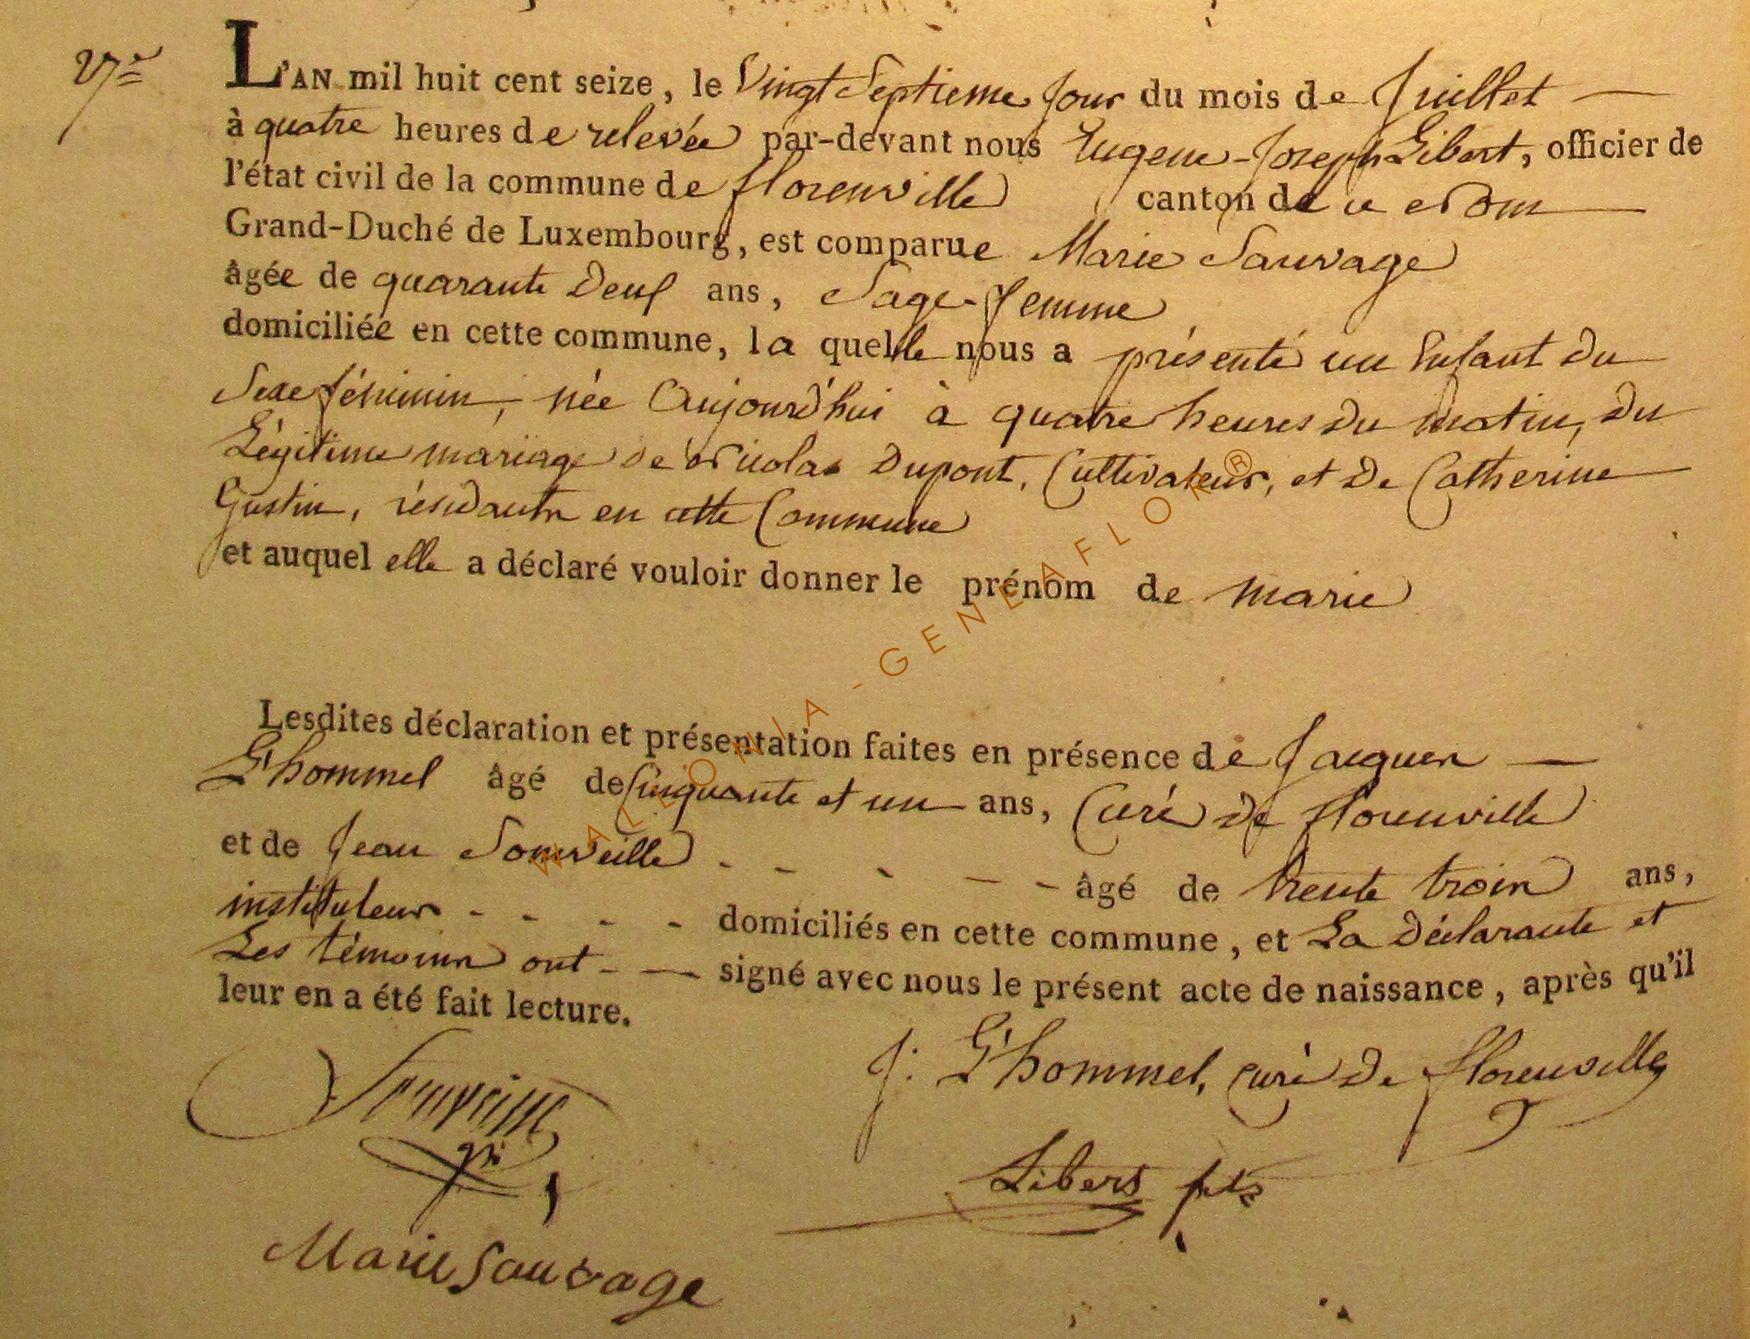 27e
L'AN mil huit cent seize, le Vingt Septieme Jour du mois de Juillet
à quatre heures de relevée par-devant nous Eugene-Joseph Libert, officier de
l'état civil de la commune de florenville canton de ce Nom
Grand-Duché de Luxembourg, est comparue Marie Sauvage
âgée de quarante Deux ans, Sage-femme
domiciliée en cette commune, la quelle nous a présenté un Enfant du
Sexe féminin, née Aujourd'hui à quatre heures du matin, du
Légitime mariage de Nicolas Dupont, Cultivateur, et de Catherine
Gustin, résidants en cette Commune
et auquel elle a déclaré vouloir donner le prénom de marie
Lesdites déclaration et présentation faites en présence de Jacques
L'hommel âgé de Cinquante et un ans, Curé de florenville
et de Jean Souveille - - - - - âgé de trente trois ans,
instituteur - - - - domiciliés en cette commune, et La Déclarante et
Les témoins ont - - signé avec nous le présent acte de naissance, après qu'il
leur en a été fait lecture.
J: L'hommel, curé de florenville
Souveille
Libert
Marie Sauvage
WALLONIA-GENEAFLOR®